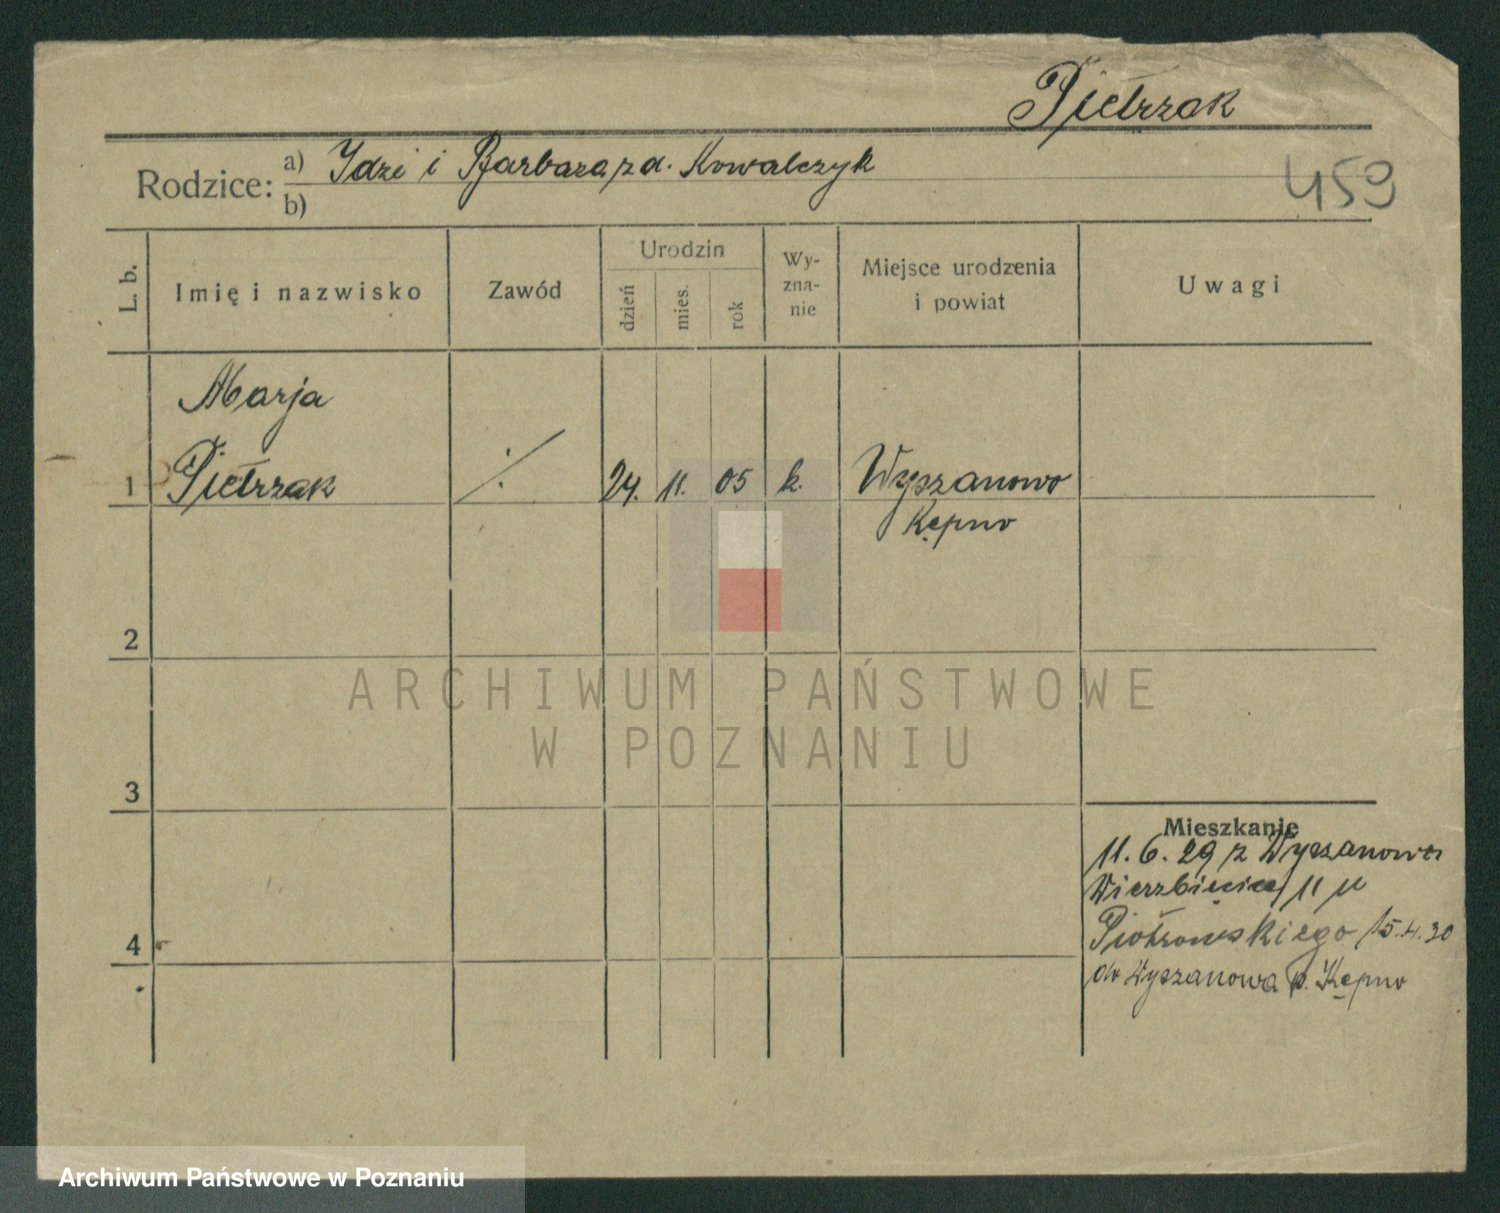 Pietrzak
459
Rodzice: a) Idzi i Barbara zd. Kowalczyk
b)
L. b.
Imię i nazwisko
Zawód
Urodzin
dzień
mies.
rok
Wy-
zna-
nie
Miejsce urodzenia
i powiat
Uwagi
Marja
1 Pietrzak ./. 24. 11. 05 k. Wyszanowo
Kępno
2
ARCHIWUM PAŃSTWOWE
W POZNANIU
3
Mieszkanie
11. 6. 29 z Wyszanowa
Wierzbięcice 11 u
4 Piotrowskiego 15.4.30
do Wyszanowa p. Kępno
Archiwum Państwowe w Poznaniu